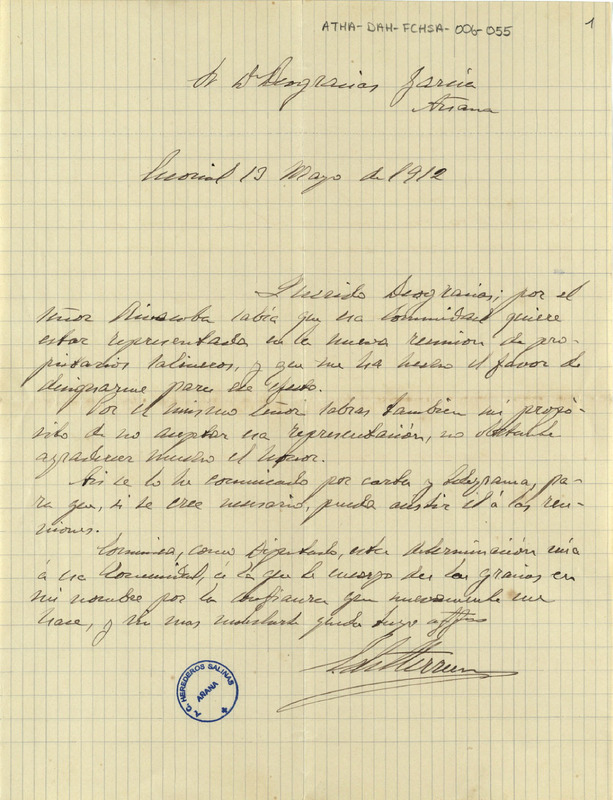 ATHA-DAH-FCHSA-006-055
1
Sr Dn Deogracias Garcia
Añana
13 Mayo de 1912
Querido Deogracias; por el
señor sabía que esa Comunidad quiere
estar representada en la nueva reunion de pro-
pietarios salineros, y que me ha hecho el favor de
designarme para ese efecto.
Por el mismo señor sabras tambien mi propó-
sito de no aceptar esa representación, no obstante
agradecer mucho el honor.
Asi se lo he comunicado por carta y telegrama, pa-
ra que, si se cree necesario, pueda asistir él á las reu-
niones.
Comunica, como Diputado, esta determinación mia
á esa Comunidad, á la que le encargo des las gracias en
mi nombre por la confianza que nuevamente me
hace, y sin mas molestarte queda tuyo
Herran
A. C. HEREDEROS SALINAS
ARANA